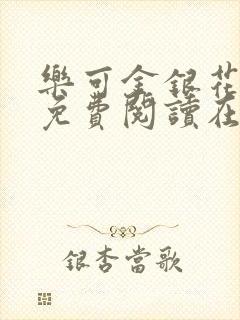 樂可金銀花
免費閱讀在
銀杏當歌